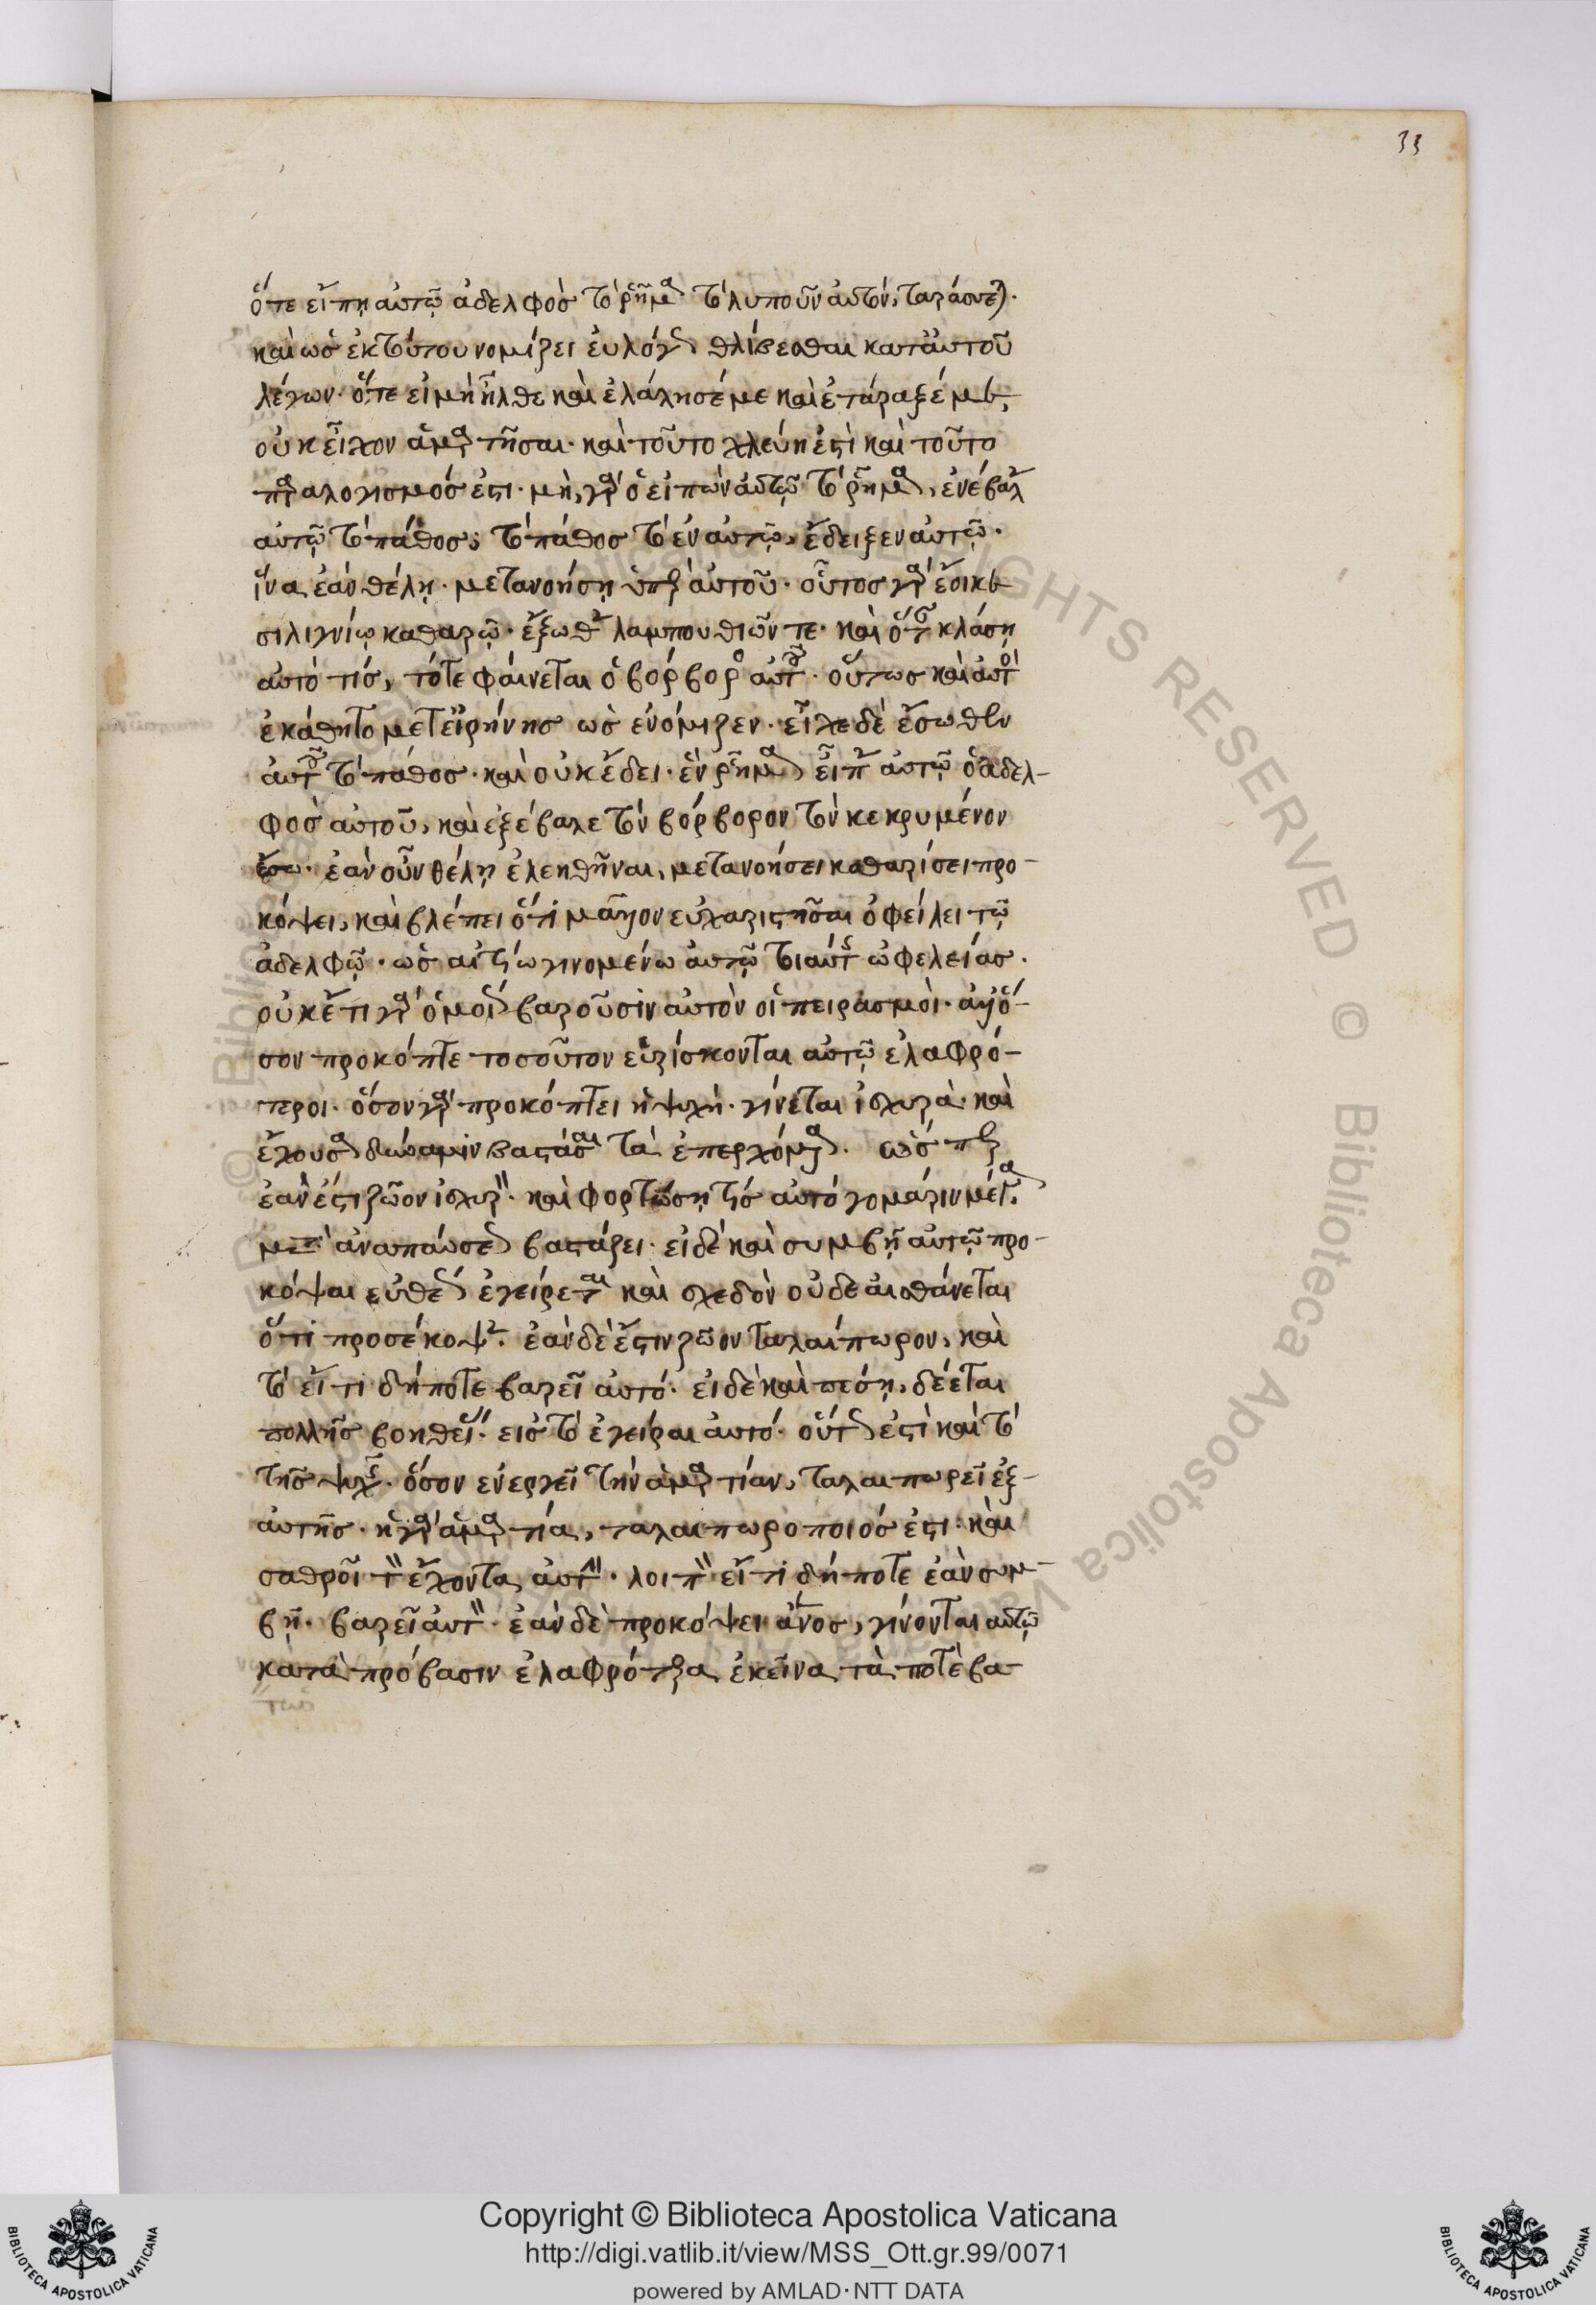 33
ὅτε εἴπῃ αὐτῷ ἀδελφὸς τὸ ῥῆμα τὸ λυποῦν αὐτόν, ταράσσεται.
καὶ ὡς ἐκ τούτου νομίζει εὐλόγως θλίβεσθαι κατ' αὐτοῦ
λέγων· ὅτε εἰ μὴ ἦλθε καὶ ἐλάλησέ με καὶ ἐτάραξέ με,
οὐκ εἶχον ἁμαρτῆσαι· καὶ τοῦτο χλεύη ἐστὶ καὶ τοῦτο
παραλογισμός ἐστι· μὴ, γὰρ ὁ εἰπὼν αὐτῷ τὸ ῥῆμα, ἐνέβαλε
αὐτῷ τὸ πάθος; τὸ πάθος τὸ ἐν αὐτῷ, ἔδειξεν αὐτῷ·
ἵνα ἐὰν θέλῃ· μετανοήσῃ ὑπὲρ αὐτοῦ· οὗτος γὰρ ἔοικε
σιλιγνίῳ καθαρῷ· ἔξωθεν λαμπουθιῶντε· καὶ ὅταν κλάσῃ
αὐτό τις, τότε φαίνεται ὁ βόρβορος αὐτοῦ· οὕτως καὶ αὐτὸς
ἐκάθητο μετ' εἰρήνης ὡς ἐνόμιζεν· εἶχε δὲ ἔσωθεν
αὐτοῦ τὸ πάθος· καὶ οὐκ ἔδει· ἓν ῥῆμα εἶπεν αὐτῷ ὁ ἀδελ-
φὸς αὐτοῦ, καὶ ἐξέβαλε τὸν βόρβορον τὸν κεκρυμένον
ἔσω· ἐὰν οὖν θέλῃ ἐλεηθῆναι, μετανοήσει καθαρίσει προ-
κόψει, καὶ βλέπει ὅτι μᾶλλον εὐχαριστῆσαι ὀφείλει τῷ
ἀδελφῷ· ὡς αἰτίω γινομένω αὐτῷ τοιαύτης ὠφελείας.
οὐκ ἔτι γὰρ ὁμοίως βαροῦσιν αὐτὸν οἱ πειρασμοὶ· ἀλλ' ὅ-
σον προκόπτε τοσοῦτον εὑρίσκονται αὐτῷ ἐλαφρό-
τεροι· ὅσον γὰρ προκόπτει ἡ ψυχή· γίνεται ἰσχυρὰ· καὶ
ἔχουσα δύναμιν βαστάσαι τὰ ἐπερχόμενα. ὥσπερ
ἐὰν ἐστι ζῶον ἰσχυρὸν· καὶ φορτώσῃ τίς αὐτό γομάριν μέγα,
μετὰ ἀναπαύσεως βαστάζει· εἰ δὲ καὶ συμβῇ αὐτῷ προ-
κόψαι εὐθέως ἐγείρεται καὶ σχεδὸν οὐδὲ αἰσθάνεται
ὅτι προσέκοψεν. ἐὰν δὲ ἔστιν ζῶον ταλαίπωρον, καὶ
τὸ εἴ τι δήποτε βαρεῖ αὐτό· εἰ δὲ καὶ πέσῃ, δέεται
πολλῆς βοηθείας· εἰς τὸ ἐγεῖραι αὐτό· οὕτως ἐστὶ καὶ τὸ
τῆς ψυχῆς· ὅσον ἐνεργεῖ τὴν ἁμαρτίαν, ταλαιπωρεῖ ἐξ-
αὐτῆς· ἡ γὰρ ἁμαρτία, ταλαιπωροποιός ἐστι· καὶ
σαθροῖ τὸν ἔχοντα αὐτὴν· λοιπὸν εἴ τι δήποτε ἐὰν συμ-
βῇ· βαρεῖ αὐτὸν· ἐὰν δὲ προκόψει ἄνος, γίνονται αὐτῷ
κατὰ πρόβασιν ἐλαφρότερα ἐκεῖνα τὰ ποτὲ βα-
Copyright © Biblioteca Apostolica Vaticana
http://digi.vatlib.it/view/MSS_Ott.gr.99/0071
powered by AMLAD·NTT DATA
BIBLIOTECA APOSTOLICA VATICANA
BIBLIOTECA APOSTOLICA VATICANA